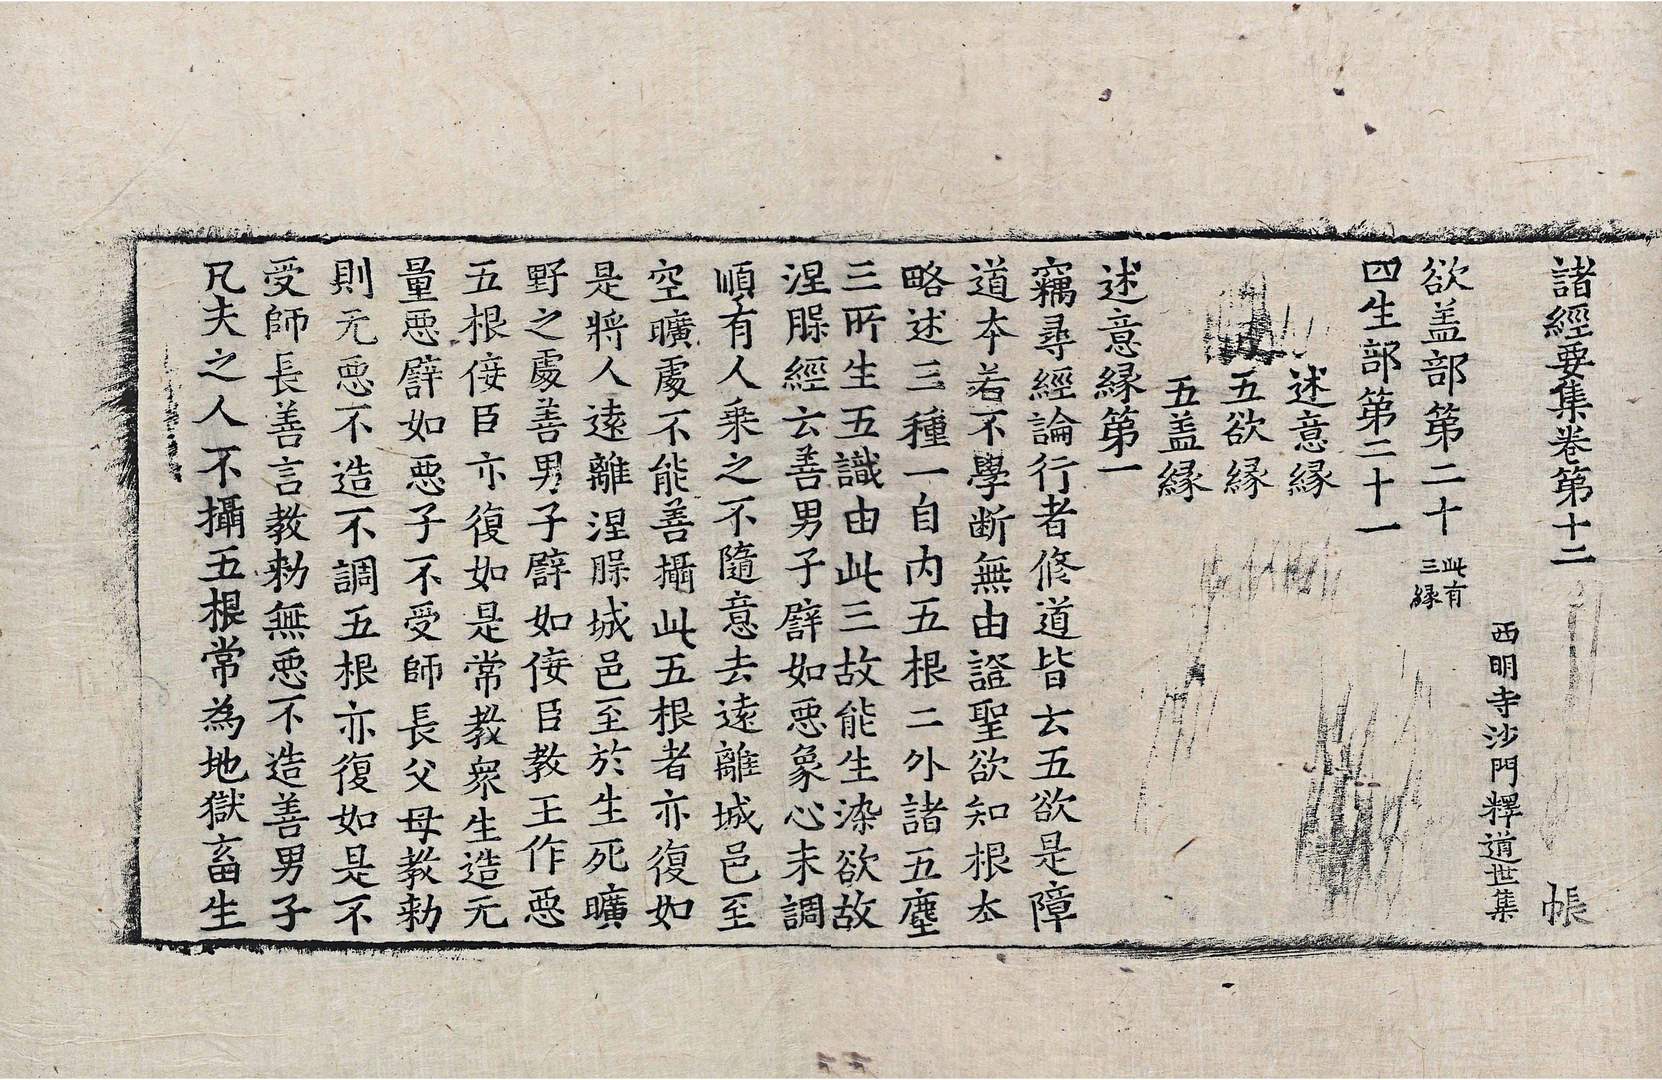 諸經要集卷第十二 帳
西明寺沙門釋道世集
欲盖部第二十 此有三緣
四生部第二十一
述意緣
五欲緣
五盖緣
述意緣第一
竊尋經論行者修道皆云五欲是障
道本若不學斷無由證聖欲知根本
略述三種一自内五根二外諸五塵
三所生五識由此三故能生染欲故
涅槃經云善男子譬如惡象心未調
順有人乘之不隨意去遠離城邑至
空曠處不能善攝此五根者亦復如
是將人遠離涅槃城邑至於生死曠
野之處善男子譬如佞臣教王作惡
五根佞臣亦復如是常教衆生造无
量惡譬如惡子不受師長父母教勑
則无惡不造不調五根亦復如是不
受師長善言教勑無惡不造善男子
凡夫之人不攝五根常為地獄畜生